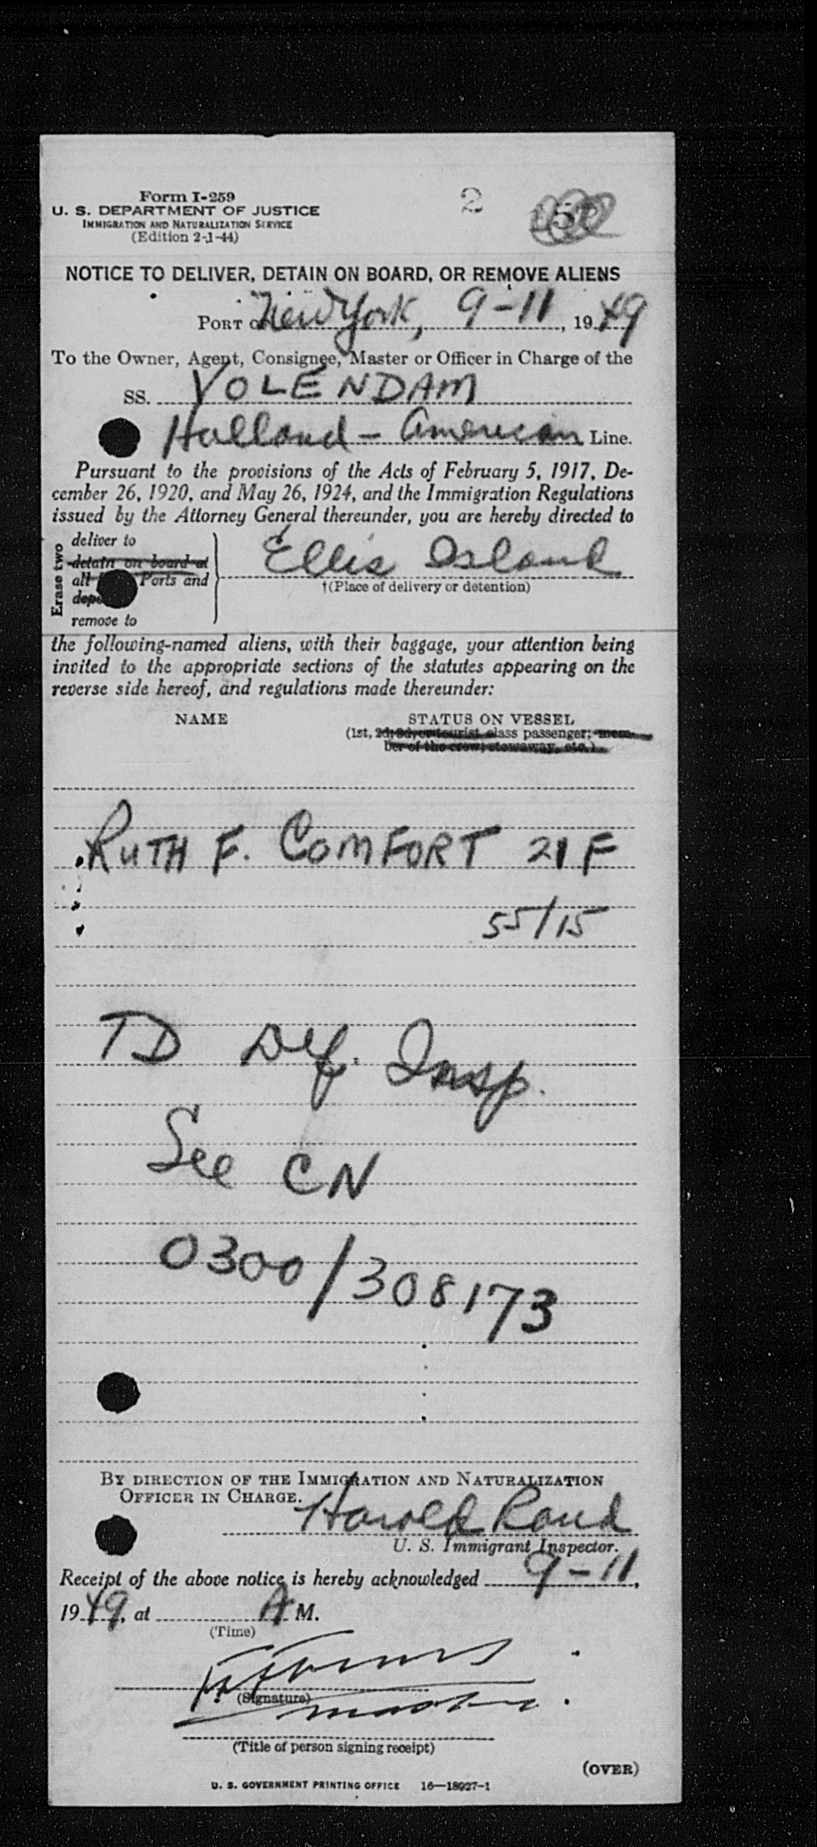 Form I-259
2
U. S. DEPARTMENT OF JUSTICE
IMMIGRATION AND NATURALIZATION SERVICE
(Edition 2-1-44)
NOTICE TO DELIVER, DETAIN ON BOARD, OR REMOVE ALIENS
PORT of New York, 9-11, 1949
To the Owner, Agent, Consignee, Master or Officer in Charge of the
SS. VOLENDAM
Holland - American Line.
Pursuant to the provisions of the Acts of February 5, 1917, De-
cember 26, 1920, and May 26, 1924, and the Immigration Regulations
issued by the Attorney General thereunder, you are hereby directed to
Erase two
deliver to
detain on board at
all Ports and
remove to
Ellis Island
†(Place of delivery or detention)
the following-named aliens, with their baggage, your attention being
invited to the appropriate sections of the statutes appearing on the
reverse side hereof, and regulations made thereunder:
NAME STATUS ON VESSEL
(1st, 2d, 3d, or tourist class passenger; mem-
ber of the crew; stowaway, etc.)
RUTH F. COMFORT 21 F
55/15
TD Def. Insp.
See CN
0300/308173
BY DIRECTION OF THE IMMIGRATION AND NATURALIZATION
OFFICER IN CHARGE.
Harold Rand
U. S. Immigrant Inspector.
Receipt of the above notice is hereby acknowledged 9-11,
1949, at A M.
(Time)
(Signature)
master.
(Title of person signing receipt)
(OVER)
U. S. GOVERNMENT PRINTING OFFICE 16—18927-1